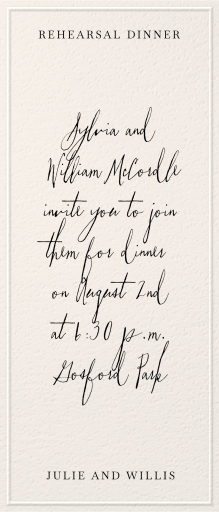 REHEARSAL DINNER
Sylvia and
William McCordle
invite you to join
them for dinner
on August 2nd
at 6:30 p.m.
Gosford Park
JULIE AND WILLIS